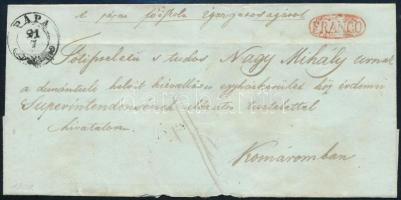 A pápai főiskola igazgatóságától
PÁPA
21
7
FRANCO
Főtiszteletű s tudós Nagy Mihály urnak
a dunántuli helvét hitvallásu egyházkerület köz érdemü
Superintendensének illendő tisztelettel
hivatalou
Komáromban